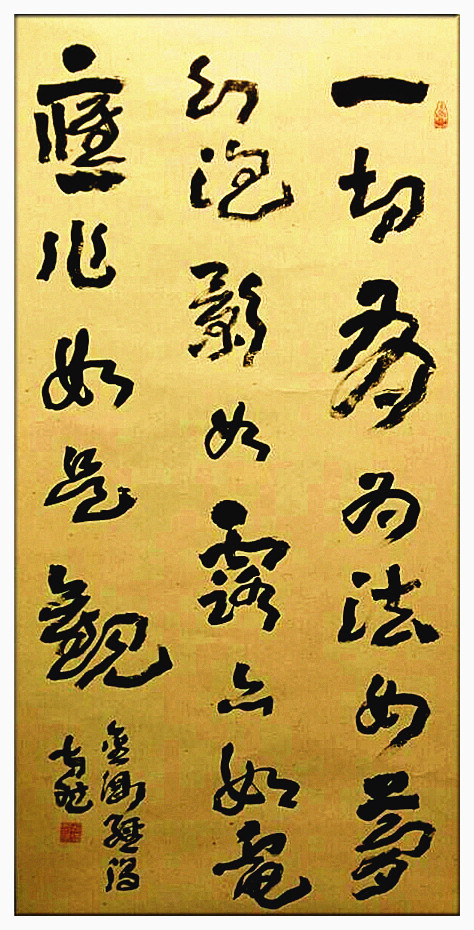 一切有为法如夢
幻泡影如露亦如電
應作如是觀
金剛經偈